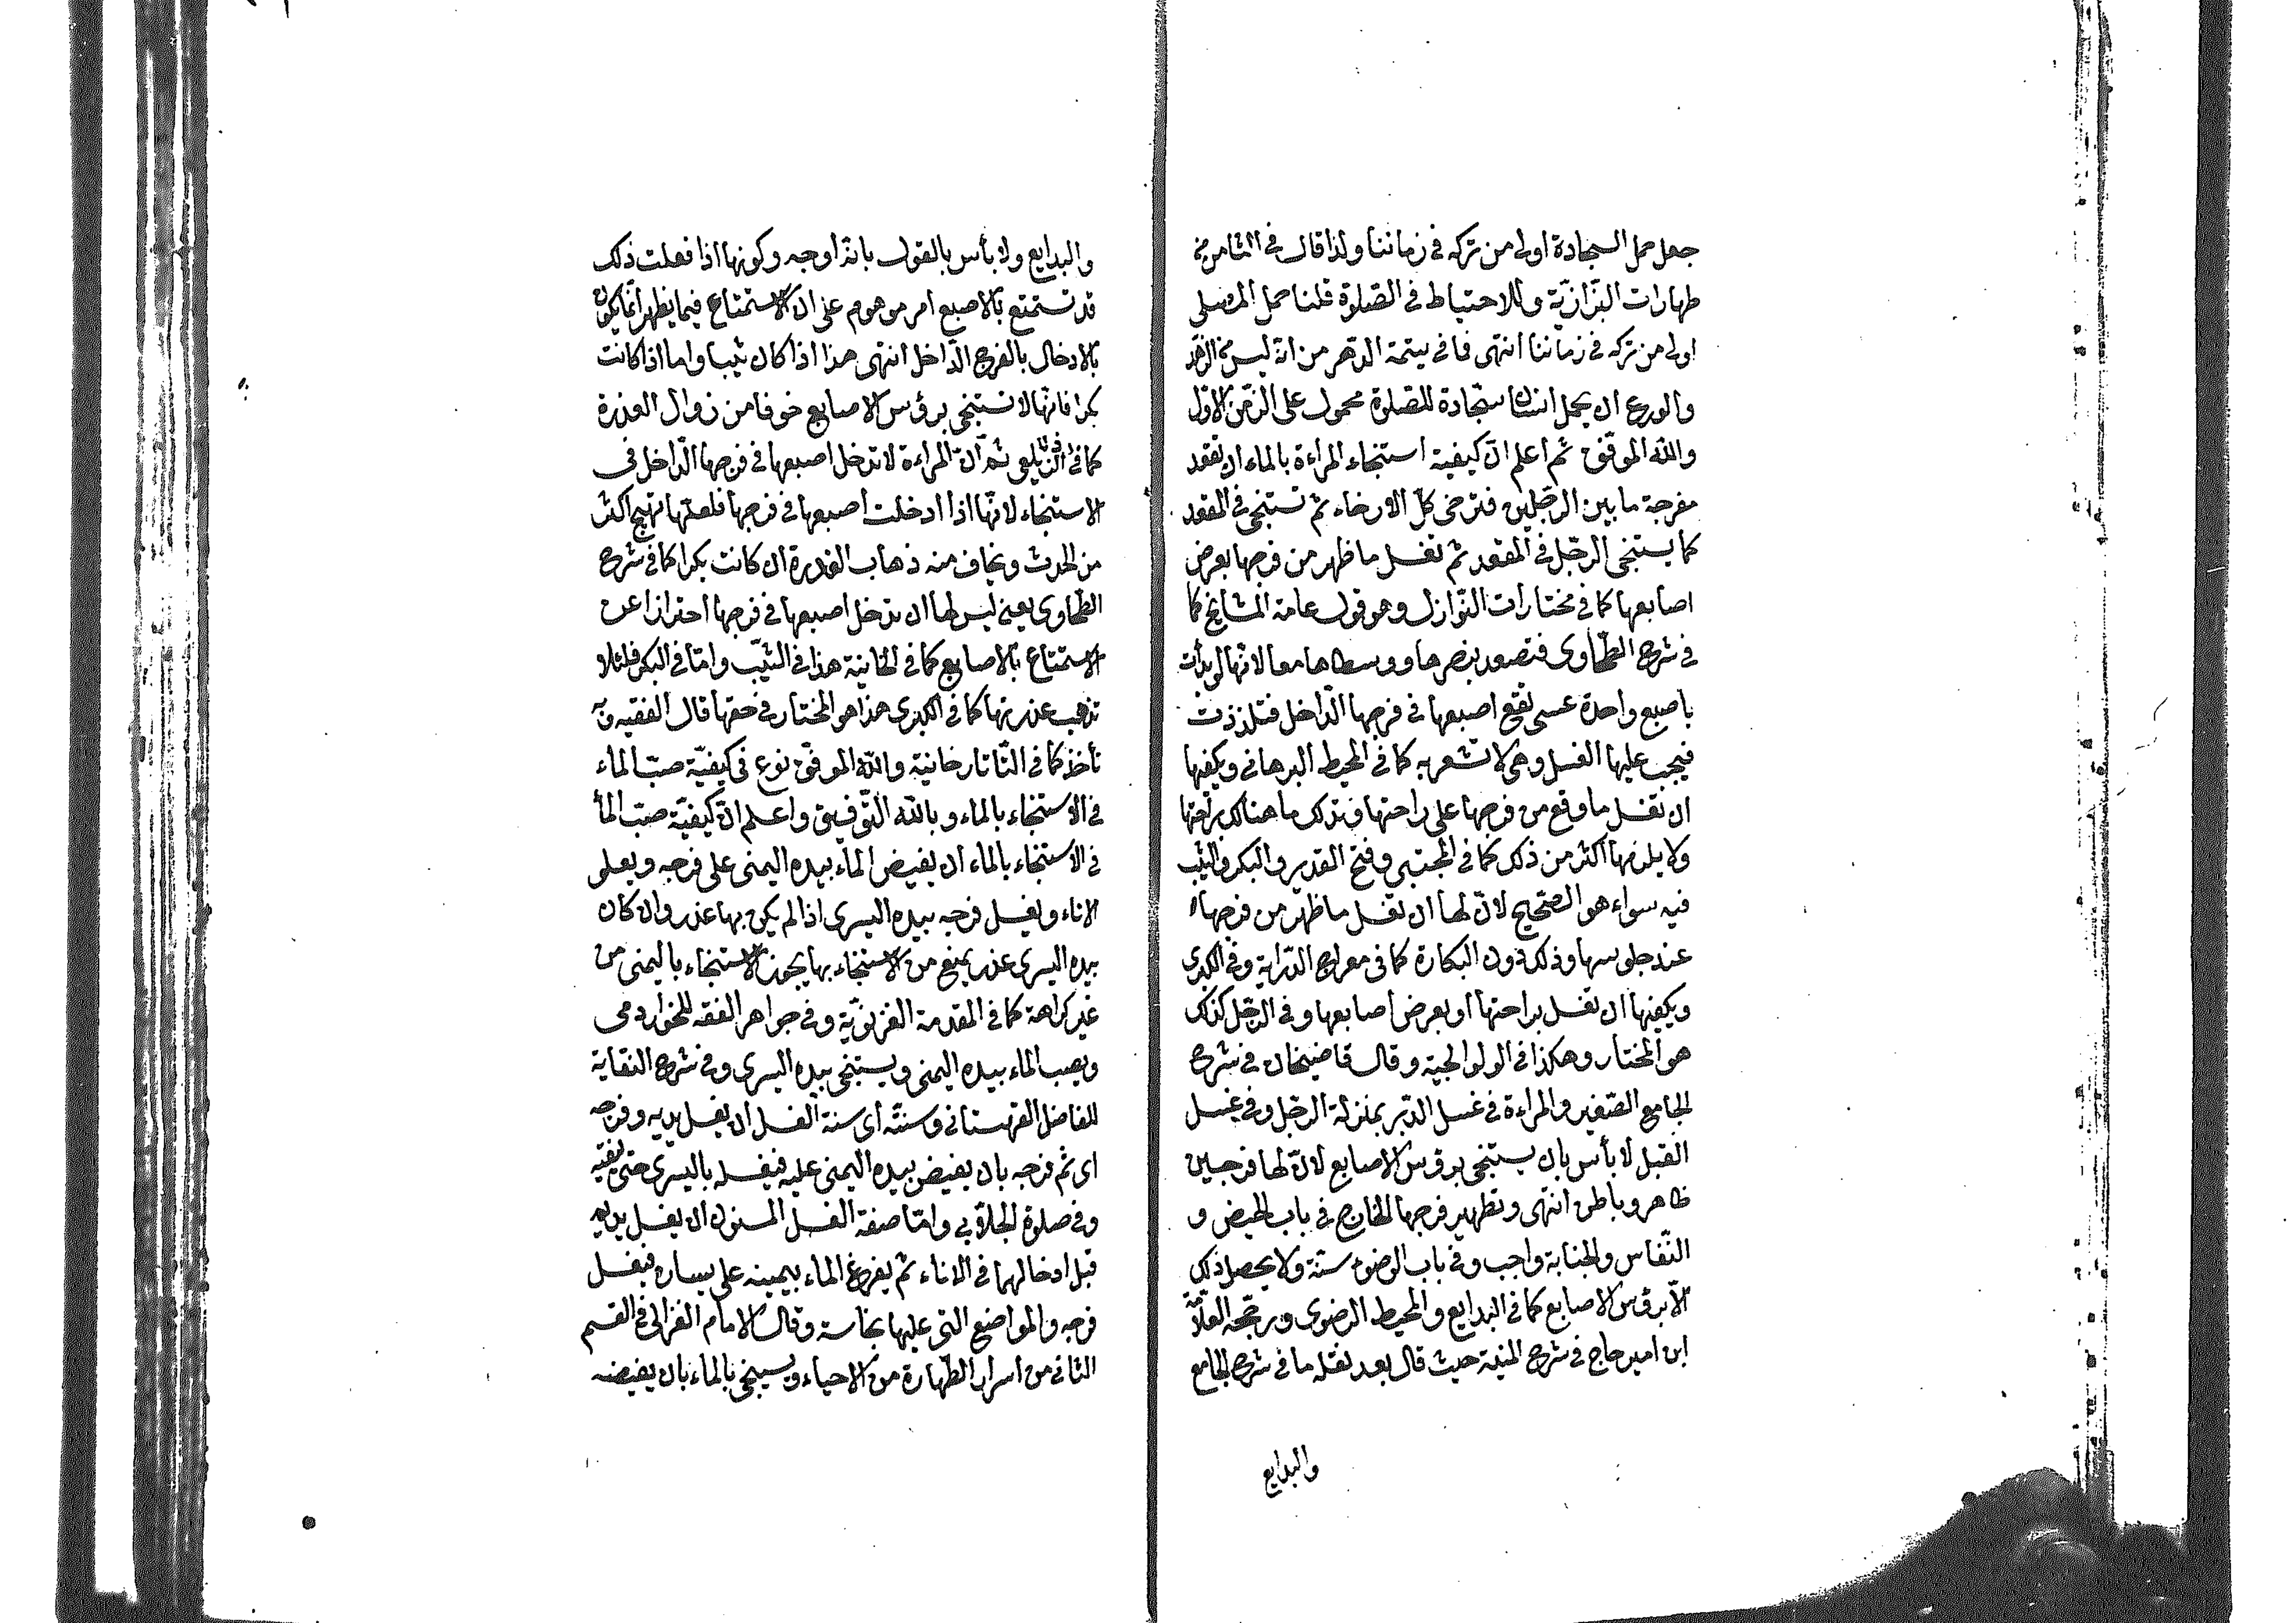 جعل حمل السجادة اولى من تركه فى زماننا ولذا قال فى الثامن من
طهارات البزازية وللاحتياط فى الصلوة قلنا حمل المصلى
اولى من تركه فى زماننا انتهى فما فى يتيمة الدهر من انه ليس من الزهد
والورع ان يحمل انسان سجادة للصلوة محمول على الزمن الاول
والله الموفق ثم اعلم ان كيفية استنجاء المراءة بالماء ان تقعد
مفرجة ما بين الرجلين فترخى كل الارخاء ثم تستنجى فى المقعد
كما يستنجى الرجل فى المقعد ثم تغسل ما ظهر من فرجها بعرض
اصابعها كما فى مختارات النوازل وهو قول عامة المشايخ كما
فى شرح الطحاوى فتصعد بنصرها ووسطاها معا لانها لو بدأت
باصبع واحدة عسى تقع اصبعها فى فرجها الداخل فتلذذت
فيجب عليها الغسل وهى لا تشعر به كما فى المحيط البرهانى ويكفيها
ان تغسل ما وقع من فرجها على راحتها وتدلك ما هنالك براحتها
ولا يلزمها اكثر من ذلك كما فى المجتبى وفتح القدير والبكر والثيب
فيه سواء هو الصحيح لان لها ان تغسل ما ظهر من فرجها
عند جلوسها وذلك دون البكارة كما فى معراج الدراية وفى الكبرى
ويكفيها ان تغسل براحتها او بعرض اصابعها وفى الرجل كذلك
هو المختار وهكذا فى الولوالجية وقال قاضيخان فى شرح
الجامع الصغير والمراءة فى غسل الدبر بمنزلة الرجل وفى غسل
القبل لا بأس بان يستنجى برؤس الاصابع لان لها فرجين
ظاهر وباطن انتهى وتطهير فرجها الخارج فى باب الحيض و
النفاس والجنابة واجب وفى باب الوضوء سنة ولا يحصل ذلك
الا برؤس الاصابع كما فى البدايع والمحيط الرضوى ورجحه العلامة
ابن امير حاج فى شرح المنية حيث قال بعد نقله ما فى شرح الجامع
والبدايع
والبدايع ولا بأس بالقول بانه اوجه وكونها اذا فعلت ذلك
قد تستمتع بالاصبع امر موهوم على ان الاستمتاع فيما يظهر انما يكون
بالادخال بالفرج الداخل انتهى هذا اذا كان ثيبا واما اذا كانت
بكرا فانها لا تستنجى برؤس الاصابع خوفا من زوال العذرة
كما فى الزيلعى ثم ان المراءة لا تدخل اصبعها فى فرجها الداخل فى
الاستنجاء لانها اذا ادخلت اصبعها فى فرجها فلعلها تهيج اكثر
من الحدث ويخاف منه ذهاب العذرة ان كانت بكرا كما فى شرح
الطحاوى يعنى ليس لها ان تدخل اصبعها فى فرجها احترازا عن
الاستمتاع بالاصابع كما فى الخانية هذا فى الثيب واما فى البكر فلئلا
تذهب عذرتها كما فى الكبرى هذا هو المختار فى حقها قال الفقيه وبه
نأخذ كما فى التاتارخانية والله الموفق نوع فى كيفية صب الماء
فى الاستنجاء بالماء وبالله التوفيق واعلم ان كيفية صب الماء
فى الاستنجاء بالماء ان يفيض الماء بيده اليمنى على فرجه ويعلى
الاناء ويغسل فرجه بيده اليسرى اذا لم يكن بها عذر وان كان
بيده اليسرى عذر يمنع من الاستنجاء بها يجوز الاستنجاء باليمنى من
غير كراهة كما فى المقدمة الغزنوية وفى جواهر الفقه للخوارزمى
ويصب الماء بيده اليمنى ويستنجى بيده اليسرى وفى شرح النقاية
للفاضل القهستانى وسنته اى سنة الغسل ان يغسل يديه وفرجه
اى ثم فرجه بان يفيض بيده اليمنى عليه فيغسله باليسرى حتى ينقيه
وفى صلوة الجلابى واما صفة الغسل المسنون ان يغسل يديه
قبل ادخالهما فى الاناء ثم يفرغ الماء بيمينه على يساره فيغسل
فرجه والمواضع التى عليها نجاسة وقال الامام الغزالى فى القسم
الثانى من اسرار الطهارة من الاحياء ويستنجى بالماء بان يفيضه